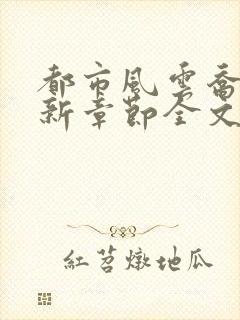 都市風雲喬
新章節全文
紅苕燉地瓜